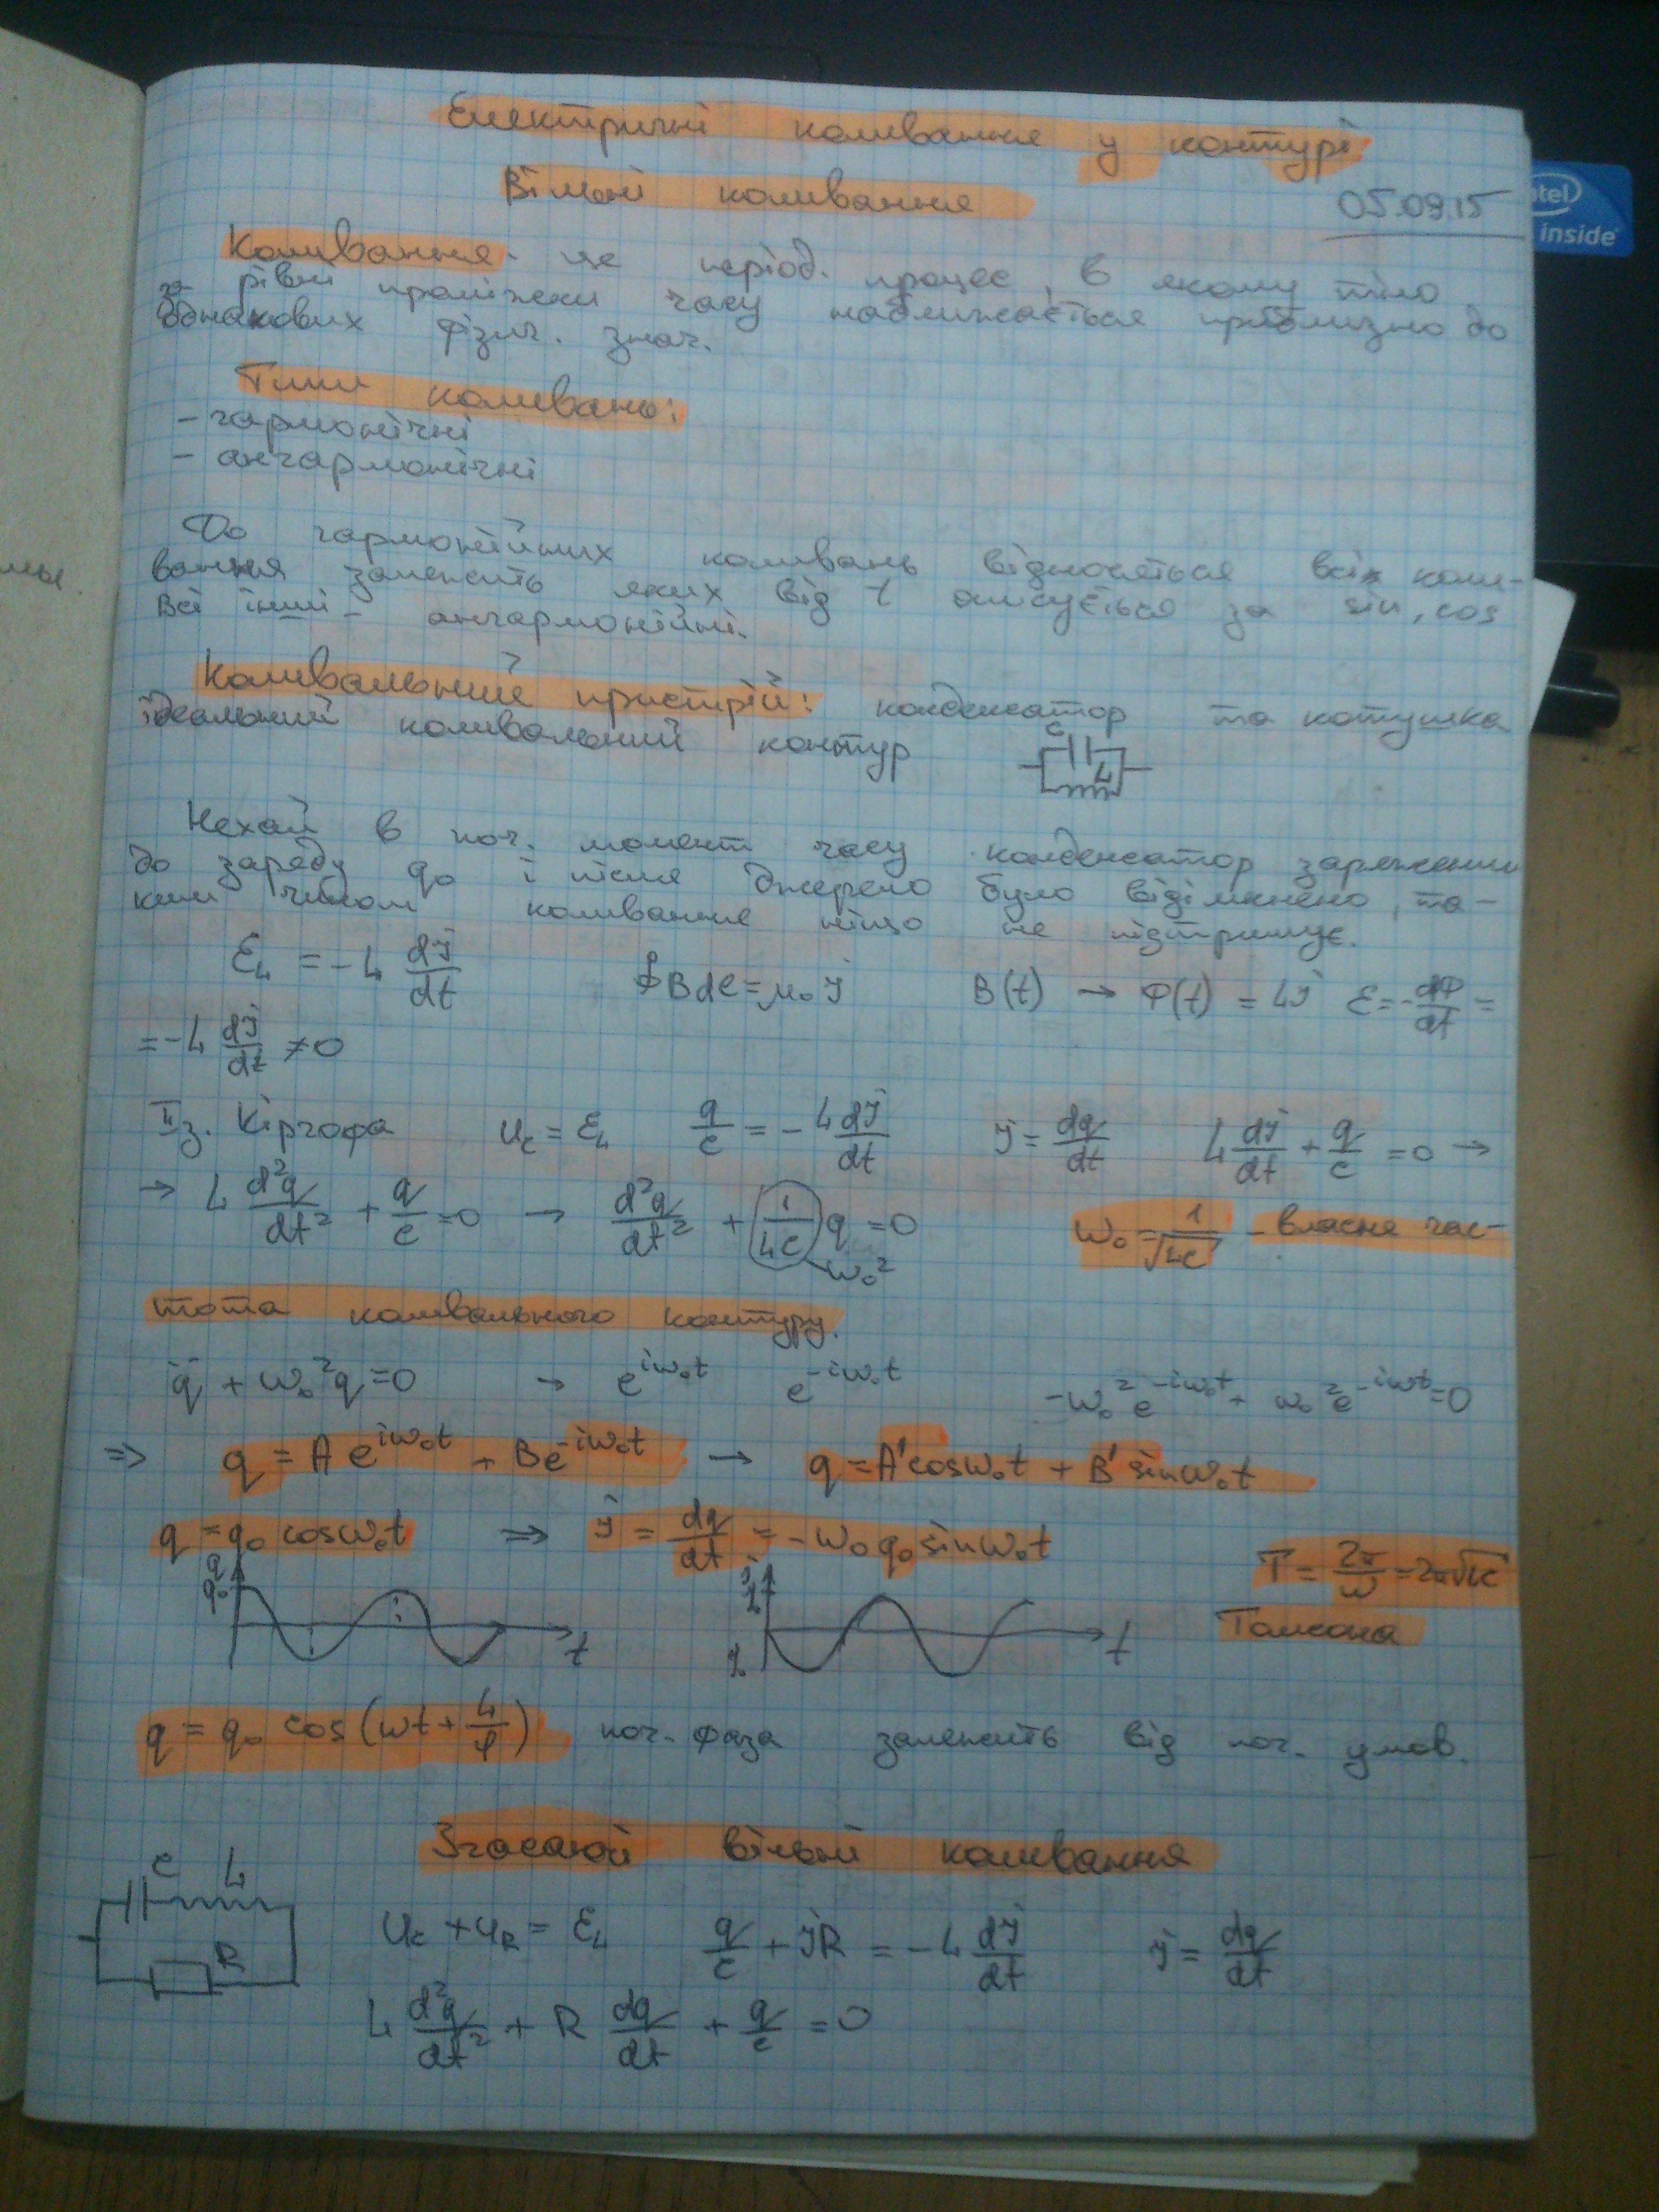 05.09.15
Електричні коливання у контурі
Вільні коливання
Коливання - це період. процес в якому тіло
за рівні проміжки часу наближається приблизно до
однакових фізич. знач.
Типи коливань:
- гармонічні
- ангармонічні
До гармонійних коливань відносяться всі коли-
вання залежність яких від t описується за sin, cos
Всі інші - ангармонійні.
Коливальние пристрій: конденсатор та котушка
ідеальний коливальний контур
C
L
Нехай в поч. момент часу конденсатор заряжений
до заряду q₀ і після джерело було відімкнено, та-
ким чином коливання ніщо не підтримує.
ℰL = -L dJ/dt ∮Bdl = μ₀J B(t) → Φ(t) = LJ ℰ = -dΦ/dt =
= -L dJ/dt ≠ 0
II з. Кірхгофа Uc = ℰL q/c = -L dJ/dt J = dq/dt L dJ/dt + q/c = 0 →
→ L d²q/dt² + q/c = 0 → d²q/dt² + (1/Lc) q = 0 ω₀ = 1/√Lc - власна час-
ω₀²
тота коливального контуру.
q̈ + ω₀²q = 0 → e^iω₀t e^-iω₀t -ω₀²e^-iω₀t + ω₀²e^-iω₀t = 0
⇒ q = Ae^iω₀t + Be^-iω₀t → q = A'cosω₀t + B'sinω₀t
q = q₀cosω₀t ⇒ J = dq/dt = -ω₀q₀sinω₀t
T = 2π/ω = 2π√Lc
Томсона
q
q₀
t
t
q = q₀ cos(ωt + φ) поч. фаза залежить від поч. умов.
Згасаючі вільні коливання
C
L
R
Uc + UR = ℰL q/c + JR = -L dJ/dt J = dq/dt
L d²q/dt² + R dq/dt + q/c = 0
intel
inside